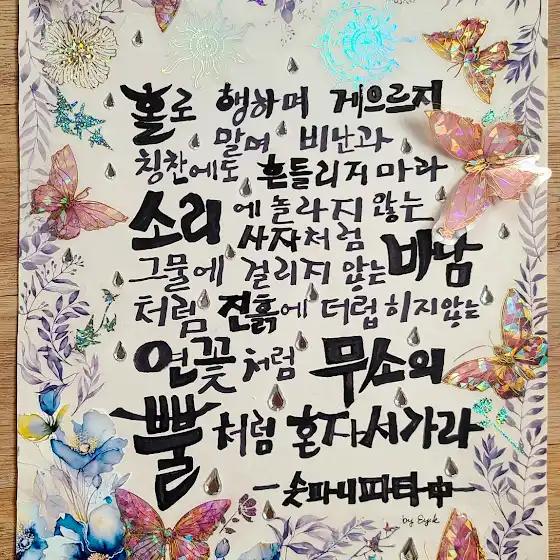 홀로 행하며 게으르지
말며 비난과
칭찬에도 흔들리지 마라
소리에 놀라지 않는
사자처럼
그물에 걸리지 않는 바남
처럼 진흙에 더럽히지않는
연꽃처럼 무소의
뿔처럼 혼자서가라
-숫파니파타中-